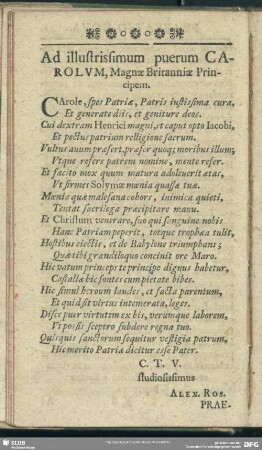 Ad illustrissimum puerum CA-
ROLVM, Magnæ Britanniæ Prin-
cipem.
CArole, spes Patriæ, Patris iustissima cura,
Et generate diis, et geniture deos.
Cui dextram Henrici magni, et caput opto Iacobi,
Et pectus patrium relligione sacrum.
Vultus anum præfert, præfer quoq; moribus illum;
Vtque refers patrem nomine, mente refer.
Et facito mox quum matura adoleverit ætas,
Vt firmes Solymæ mænia quassa tuæ.
Mænia quæ malesana cohors, inimica quieti,
Tentat sacrilega præcipitare manu.
Et Christum venerare, suo qui sanguine nobis
Hanc Patriam peperit, totque trophæa tulit,
Hostibus electis, et de Babylone triumphans;
Quæ tibi grandiloquo concinit ore Maro.
Hic vatum princeps te principe dignus habetur,
Castaliæ hic fontes cum pietate bibes.
Hic simul heroum laudes, et facta parentum,
Et quid sit virtus intemerata, leges.
Disce puer virtutem ex his, verumque laborem,
Vt possis sceptro subdere regna tuo.
Quisquis sanctorum sequitur vestigia patrum,
Hic merito Patriæ dicitur esse Pater.
C. T. V.
studiosissimus
ALEX. ROS.
PRAE-
SLUB
DFG